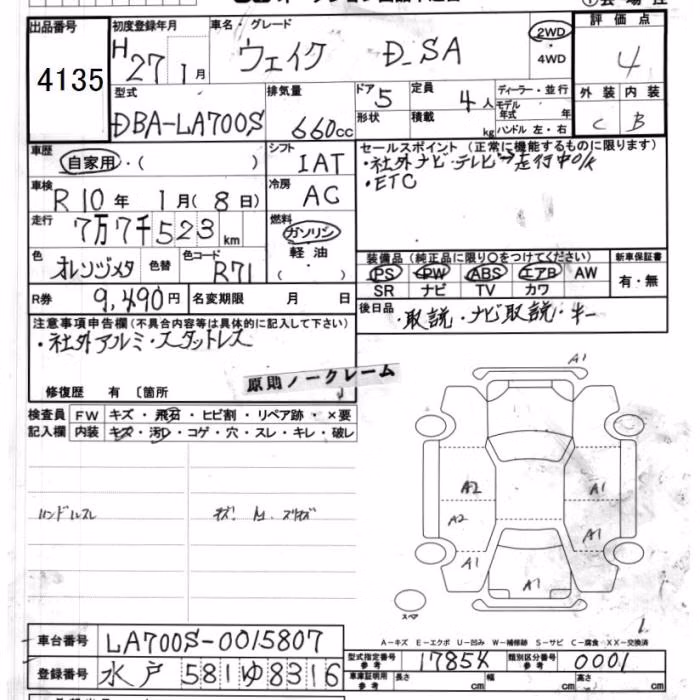 出品番号
4135
初度登録年月
H 27 1月
車名・グレード
ウェイク D_SA
2WD
4WD
評価点
4
外装 内装
C B
型式
DBA-LA700S
排気量
660cc
ドア 5
形状
定員 4人
積載 kg
ディーラー・並行
モデル年式 年
ハンドル 左・右
車歴
自家用・( )
シフト
IAT
セールスポイント (正常に機能するものに限ります)
・社外ナビ・テレビ→走行中O/K
・ETC
車検
R10年 1月(8日)
冷房
AC
走行
7万7千523km
燃料
ガソリン
軽油
( )
色
オレンジメタ
色替
色コード
R71
装備品 (純正品に限り○をつけてください)
PS PW ABS エアB AW
SR ナビ TV カワ
新車保証書
有・無
R券 9,490円
名変期限 月 日
後日品
・取説・ナビ取説・キー
注意事項申告欄 (不具合内容等は具体的に記入して下さい)
・社外アルミ・スタットレス
修復歴 有 〔箇所
原則ノークレーム
検査員記入欄
FW キズ・飛石・ヒビ割・リペア跡・×要
内装 キズ・汚レ・コゲ・穴・スレ・キレ・破レ
ハンドルスレ
A1
A2 A1
A2 A1
A1 A1
スペア
A-キズ E-エクボ U-凹み W-補修跡 S-サビ C-腐食 XX-交換済
車台番号 LA700S-0015807
登録番号 水戸 581 ゆ 8316
型式指定番号 参考 17854
類別区分番号 参考 0001
車庫証明 参考 長さ cm 幅 cm 高さ cm